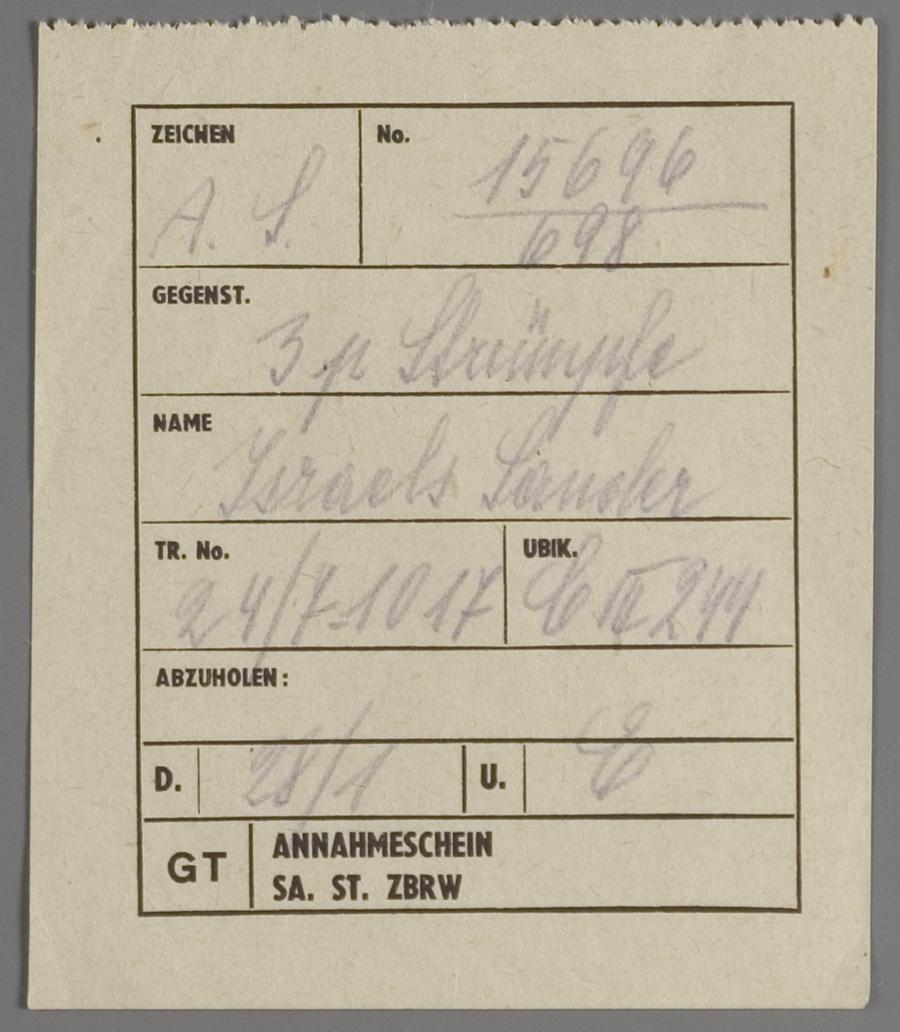 ZEICHEN No.
A. S. 15696
698
GEGENST.
3 p Strümpfe
NAME
Israels Sander
TR. No. UBIK.
24/7-1017 E III 244
ABZUHOLEN:
D. 28/1 U. E
GT ANNAHMESCHEIN
SA. ST. ZBRW